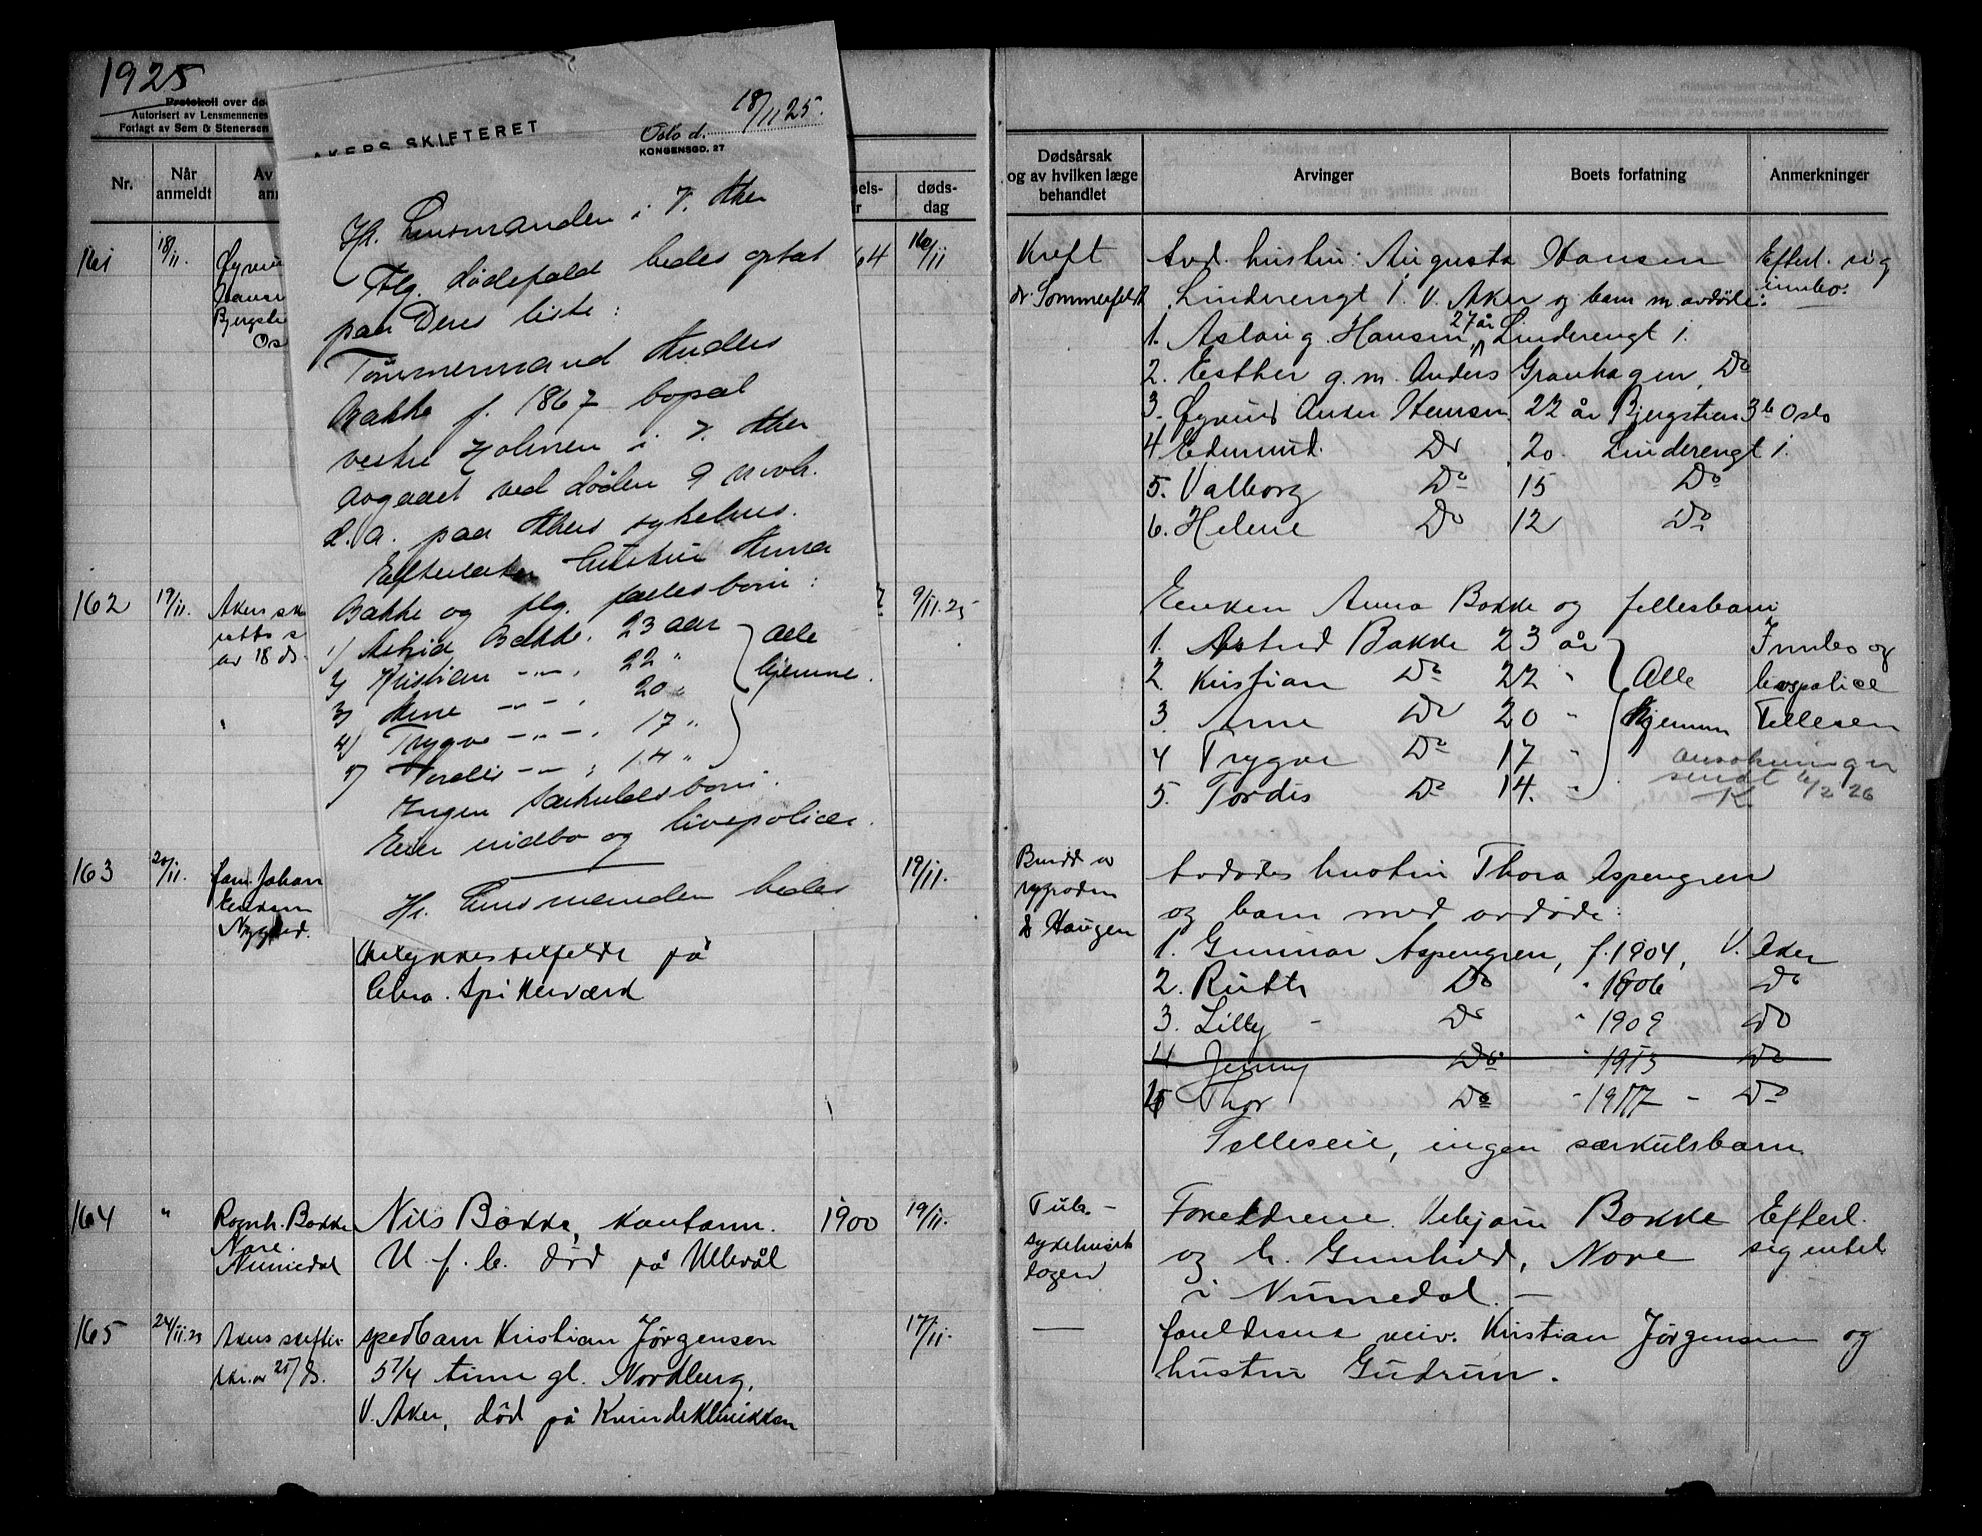 1925
Protokoll over dø
Autorisert av Lensmennenes
Forlagt av Sem & Stenersen
Nr.
Når anmeldt
Av
an
AKERS SKIFTERET
Oslo d. 18/11 25.
KONGENSGD. 27
Hr. Lensmanden i V. Aker
Flg. dødsfald bedes optat
paa Deres liste:
Tømmermand Anders
Bakke f. 1867 bopæl
vestre Holmen i V. Aker
avgaaet ved døden 9 novb.
d. a. paa Akers sykehus.
Efterlater hustru Anna
Bakke og flg. fællesbarn:
1) Astrid Bakke, 23 aar
2) Kristian -"- , 22 "
3) Arne -"- , 20 "
4) Trygve -"- , 17 "
5) Tordis -"- , 14 "
alle hjemme.
Ingen særkuldsbarn.
Eier indbo og livspolicer.
Hr. Lensmanden bedes
els-
r
døds-
dag
161
18/11.
Øyvin
Hanse
Bjergste
Os
64
16/11
162
19/11.
Akers sk
retts s
av 18 ds.
7.
9/11.25
163
20/11.
fam. Johan
Eriksen
Nygård.
19/11.
ulykkestilfelde på
Chra. Spikerværk
164
"
Ragnh. Bakke
Nore
Numedal
Nils Bakke, kontorm.
U. f. b. død på Ullevål
1900
19/11.
165
24/11.25
Akers skifter
skr. av 21/ ds.
spedbarn Kristian Jørgensen
5 1/4 time gl. Nordberg,
V. Aker, død på Kvindeklinikken
17/11.
Dødsårsak
og av hvilken læge
behandlet
Arvinger
Boets forfatning
Anmerkninger
Kreft
dr. Sommerfeldt
Avd. hustru: Augusta Hansen
Linderengt 1. V. Aker og barn m. avdøde:
1. Aslaug Hansen, 27 år Linderengt 1.
2. Esther g. m. Anders Granhagen, Do
3. Øyvind Hansen 22 år Bjergstien 3b Oslo
4 Edmund. Do 20. Linderengt 1.
5. Valborg Do 15 Do
6. Helene Do 12 Do
Efterl. sig
innbo.
Enken Anna Bakke og fellesbarn
1. Astrid Bakke 23 år
2. Kristian Do 22 "
3. Arne Do 20 "
4 Trygve Do 17 "
5. Tordis Do 14. "
Alle
hjemme
Innbo og
livspolice
Felleseie
ansøkninger
sendt 4/2 26
K.
Brudd av
rygraden
dr Haugen
Avdødes hustru Thora Aspengren
og barn med avdøde:
1. Gunnar Aspengren, f. 1904, V. Aker
2. Ruth Do " 1906 Do
3. Lilly Do " 1909 Do
4 Jenny Do " 1913 Do
5 Thor Do " 1917 - Do
Felleseie, ingen særkulsbarn.
Tub. -
sykehuset
Foreldrene Vebjørn Bakke
og h. Gunhild, Nore
i Numedal. -
Efterl.
sig intet
—
foreldrene Kristian Jørgensen og
hustru Gudrun.